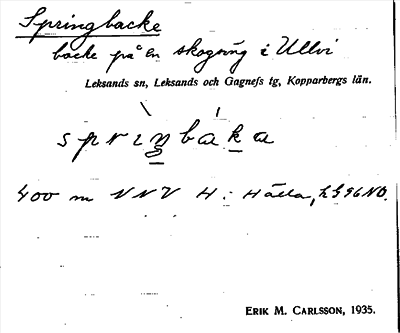 Springbacke
backe på en skogsväg i Ullvi
Leksands sn, Leksands och Gagnefs tg, Kopparbergs län.
spriŋbaka
400 m VNV H i Hälla,
ERIK M. CARLSSON, 1935.